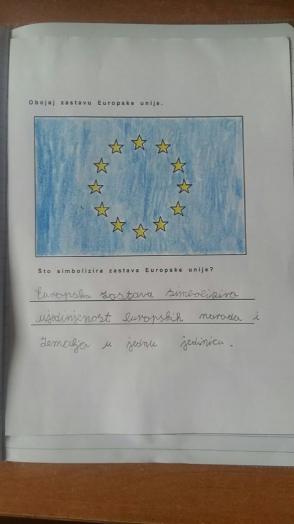 Obojaj zastavu Europske unije.
Što simbolizira zastava Europske unije?
Europska zastava simbolizira
ujedinjenost europskih naroda i
zemalja u jednu jedinicu.